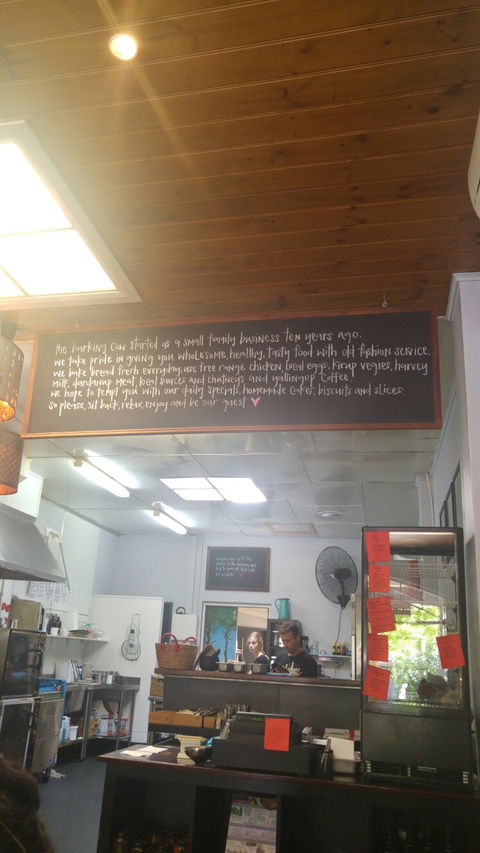 the barking cow started as a small family business ten years ago.
we take pride in giving you wholesome, healthy, tasty food with old fashion service.
we bake bread fresh everyday, use free range chicken, local eggs, kirup vegies, harvey
milk, dardanup meat, local sauces and chutneys and yallingup coffee!
we hope to tempt you with our daily specials, homemade cakes, biscuits and slices.
so please, sit back, relax, enjoy and be our guest